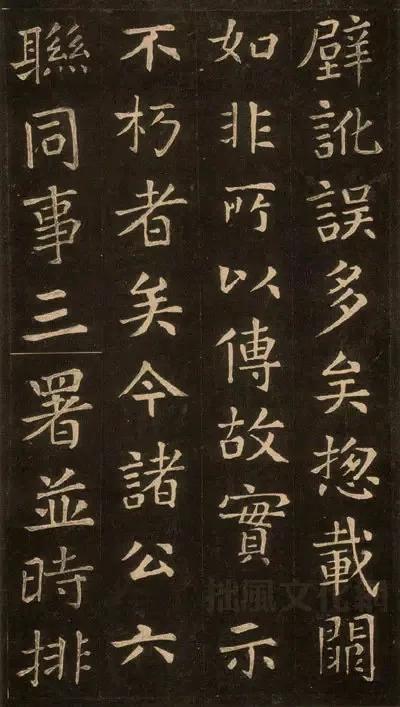 壁訛誤多矣揔載闕
如非所以傳故實示
不朽者矣今諸公六
聯同事三署並時排
拙風文化網